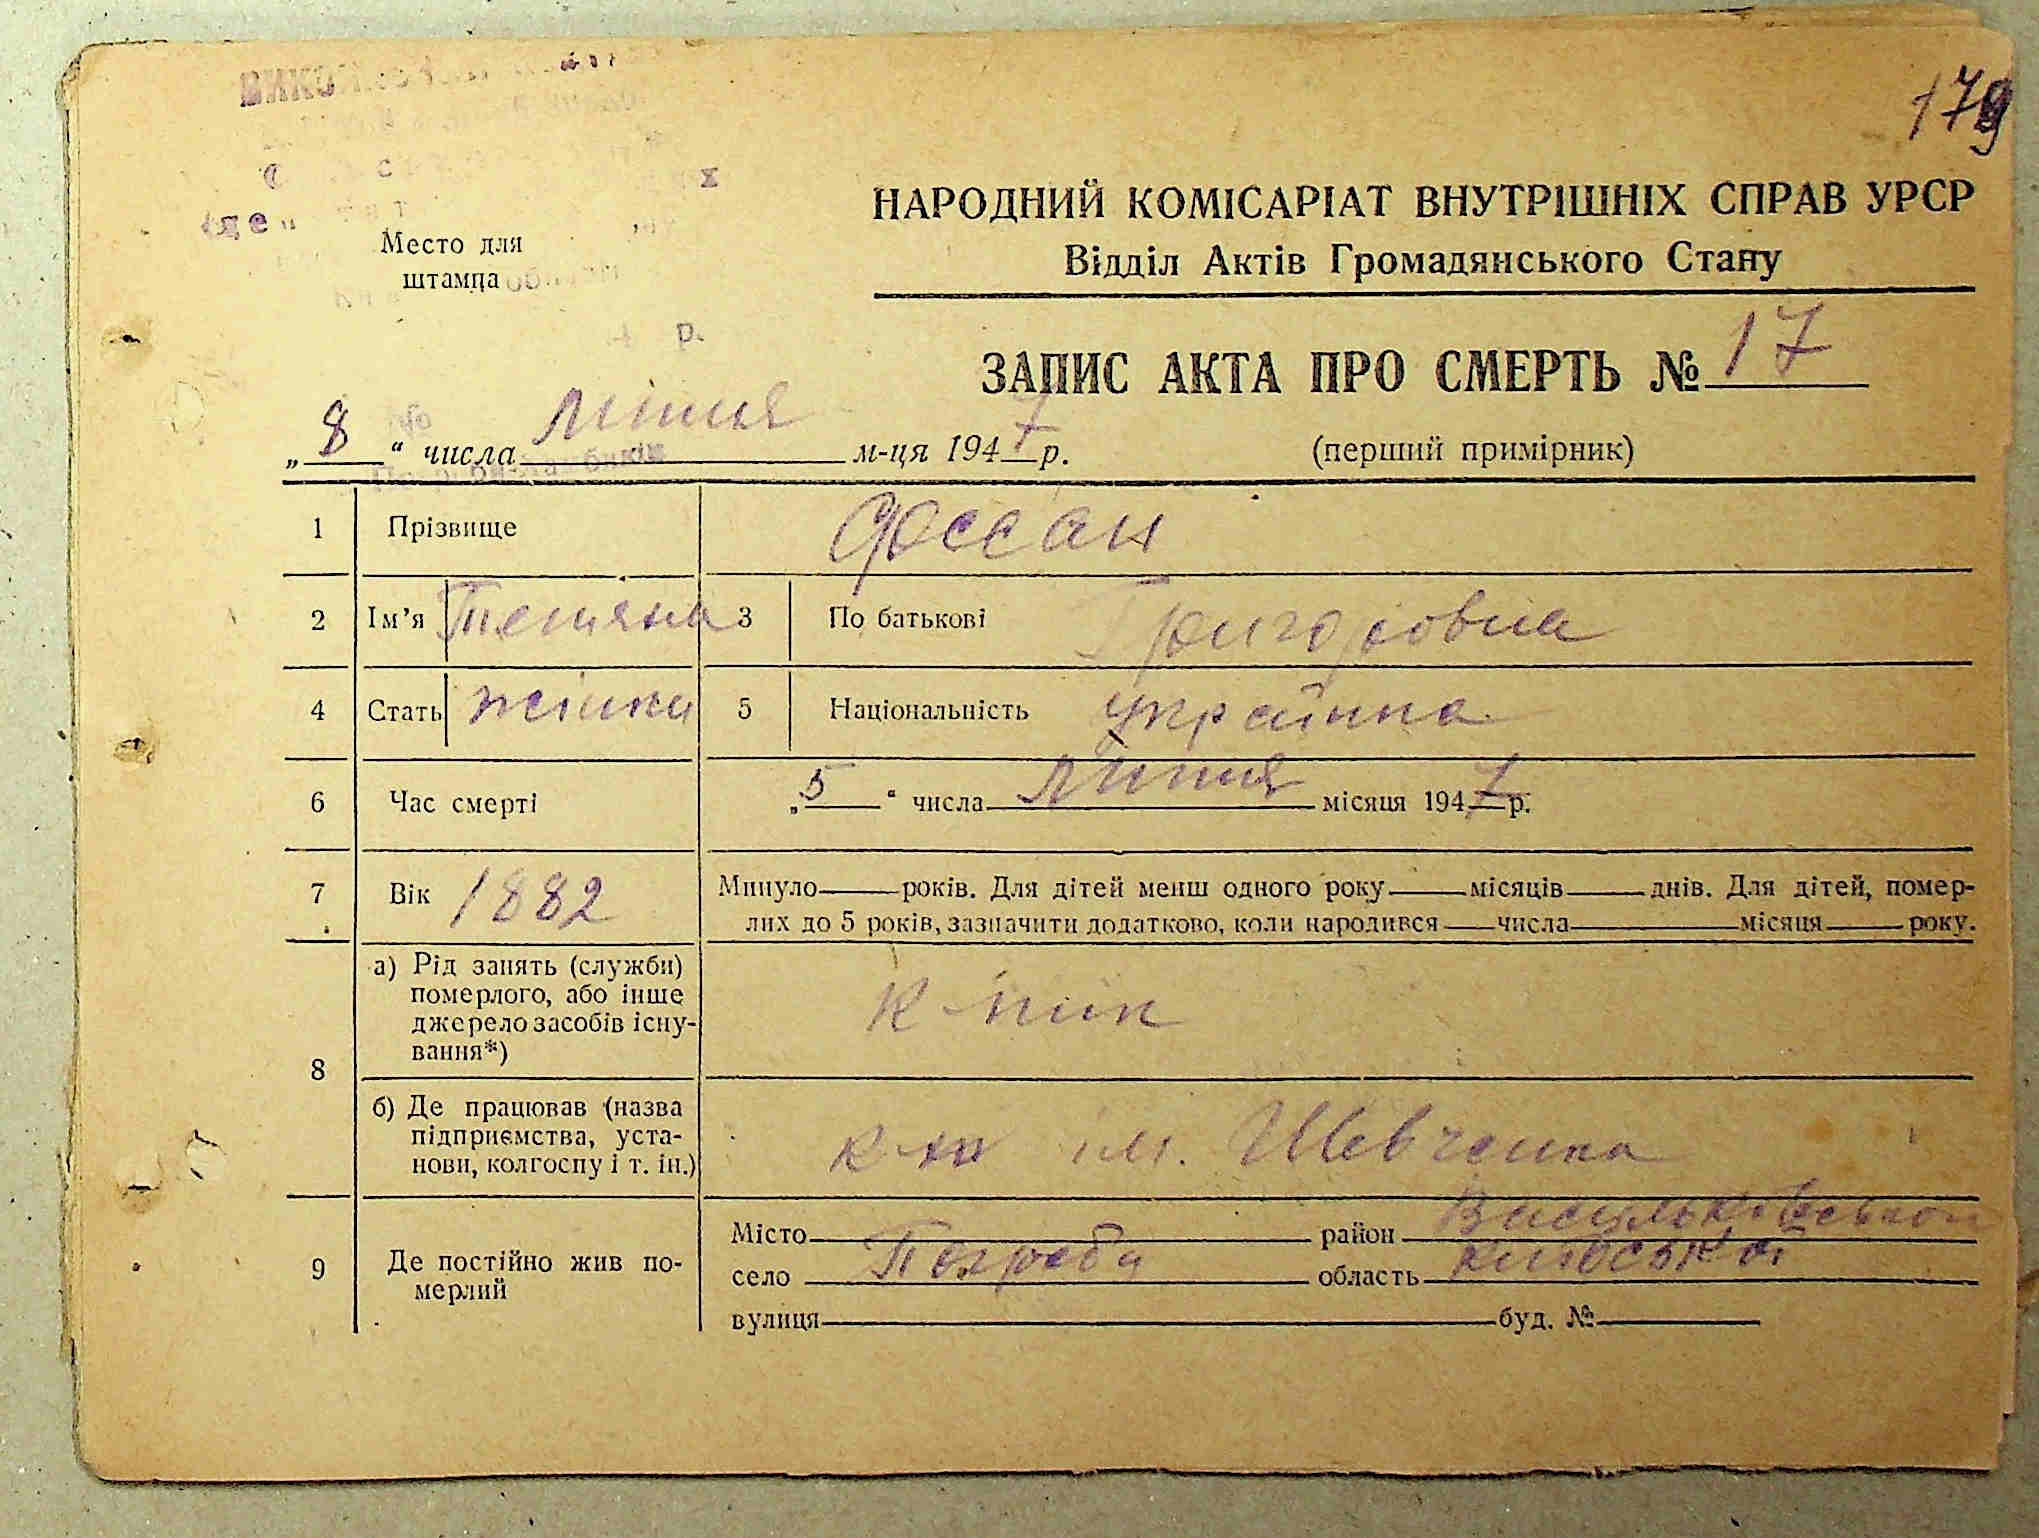 179
НАРОДНИЙ КОМІСАРІАТ ВНУТРІШНІХ СПРАВ УРСР
Відділ Актів Громадянського Стану
Место для
штампа
ЗАПИС АКТА ПРО СМЕРТЬ № 17
„8“ числа липня м-ця 1947 р.
(перший примірник)
1 Прізвище
2 Ім'я Тетяна 3 По батькові Григоровна
4 Стать жінка 5 Національність українка
6 Час смерті „5“ числа липня місяця 1947 р.
7 Вік 1882 Минуло років. Для дітей менш одного року місяців днів. Для дітей, помер-
лих до 5 років, зазначити додатково, коли народився числа місяця року.
8 а) Рід занять (служби)
померлого, або інше
джерело засобів існу-
вання*)
к-ник
б) Де працював (назва
підприємства, уста-
нови, колгоспу і т. ін.)
ім. Шевченка
9 Де постійно жив по-
мерлий
Місто район
село Погреби область Київська
вулиця буд. №